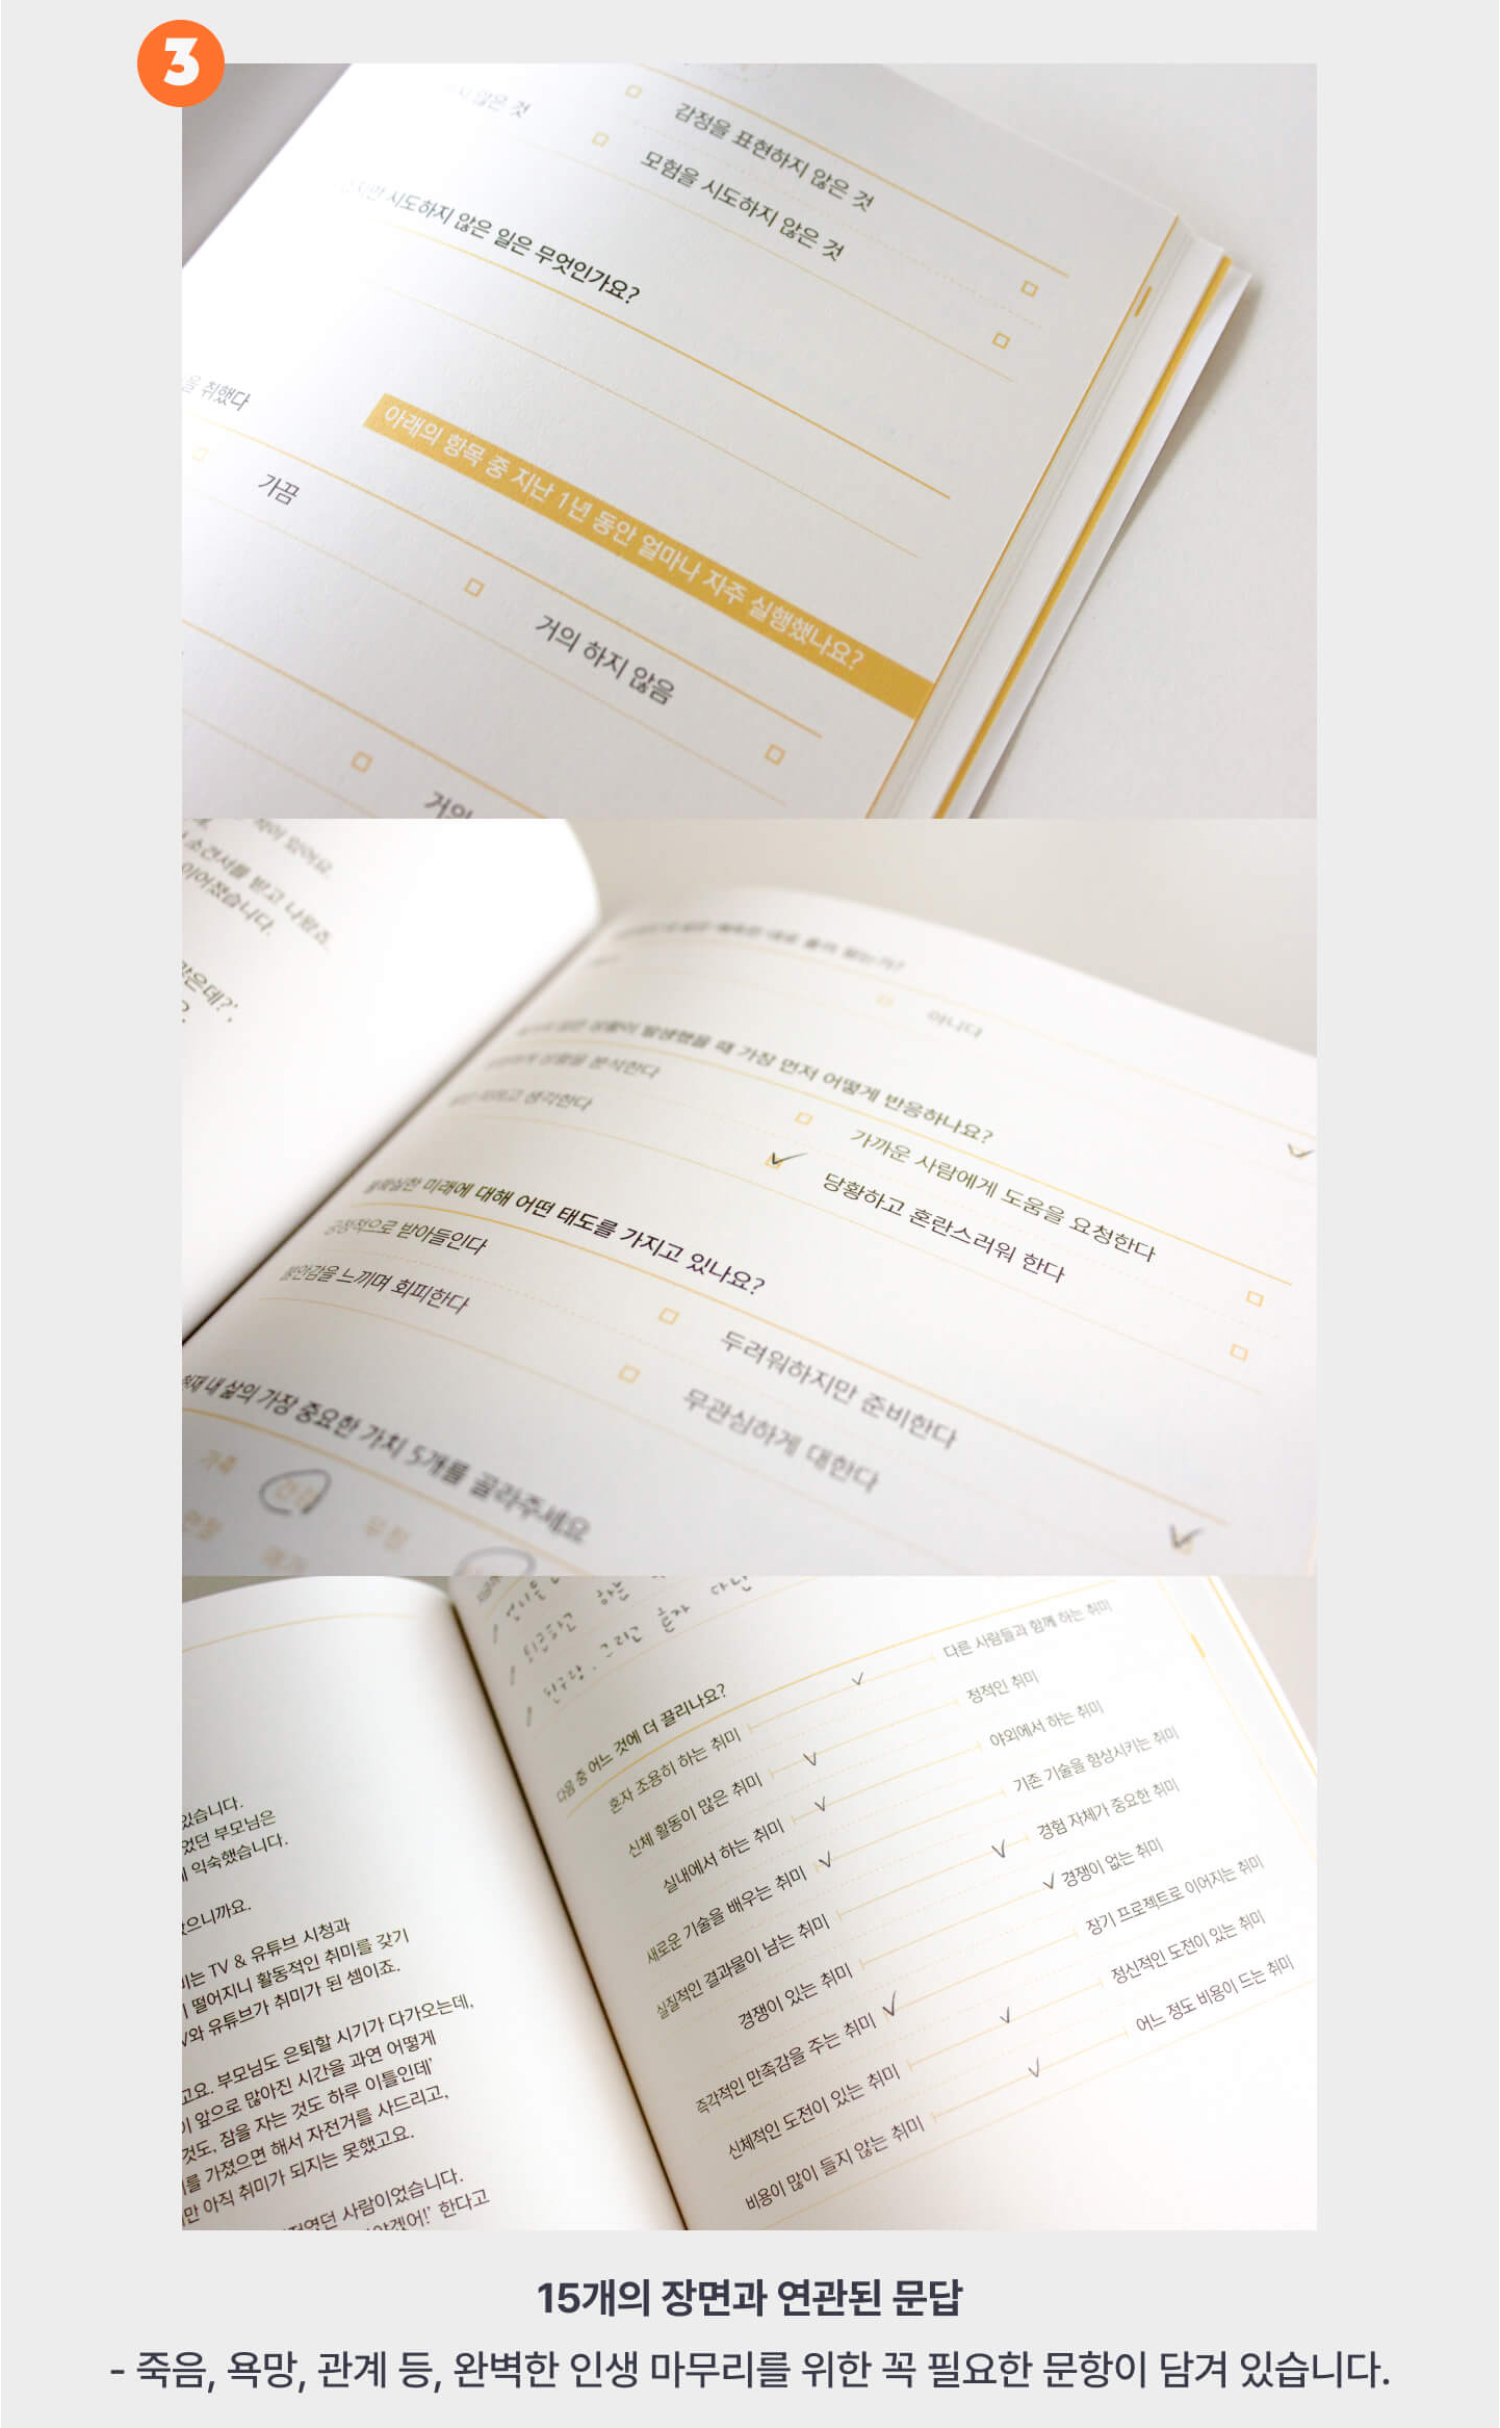 3
않은 것
감정을 표현하지 않은 것
모험을 시도하지 않은 것
시도하지 않은 일은 무엇인가요?
을 취했다
아래의 항목 중 지난 1년 동안 얼마나 자주 실행했나요?
가끔
거의 하지 않음
거의
소견서를 받고 나왔죠.
이어졌습니다.
같은데?',
아니다
상황이 발생했을 때 가장 먼저 어떻게 반응하나요?
상황을 분석한다
가까운 사람에게 도움을 요청한다
생각한다
당황하고 혼란스러워 한다
불확실한 미래에 대해 어떤 태도를 가지고 있나요?
긍정적으로 받아들인다
두려워하지만 준비한다
불안감을 느끼며 회피한다
무관심하게 대한다
현재 내 삶의 가장 중요한 가치 5개를 골라주세요
가족
우정
있습니다.
었던 부모님은
익숙했습니다.
았으니까요.
미는 TV & 유튜브 시청과
떨어지니 활동적인 취미를 갖기
V와 유튜브가 취미가 된 셈이죠.
고요. 부모님도 은퇴할 시기가 다가오는데,
이 앞으로 많아진 시간을 과연 어떻게
것도, 잠을 자는 것도 하루 이틀인데'
를 가졌으면 해서 자전거를 사드리고,
만 아직 취미가 되지는 못했고요.
사람이었습니다.
한다고
그리고 혼자
다음 중 어느 것에 더 끌리나요?
혼자 조용히 하는 취미 다른 사람들과 함께 하는 취미
신체 활동이 많은 취미 정적인 취미
실내에서 하는 취미 야외에서 하는 취미
새로운 기술을 배우는 취미 기존 기술을 향상시키는 취미
실질적인 결과물이 남는 취미 경험 자체가 중요한 취미
경쟁이 있는 취미 경쟁이 없는 취미
즉각적인 만족감을 주는 취미 장기 프로젝트로 이어지는 취미
신체적인 도전이 있는 취미 정신적인 도전이 있는 취미
비용이 많이 들지 않는 취미 어느 정도 비용이 드는 취미
15개의 장면과 연관된 문답
- 죽음, 욕망, 관계 등, 완벽한 인생 마무리를 위한 꼭 필요한 문항이 담겨 있습니다.